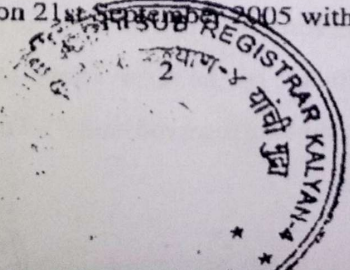 on 21st September 2005 with
SUB REGISTRAR KALYAN-4
कल्याण-४ यांची मुद्रा
2